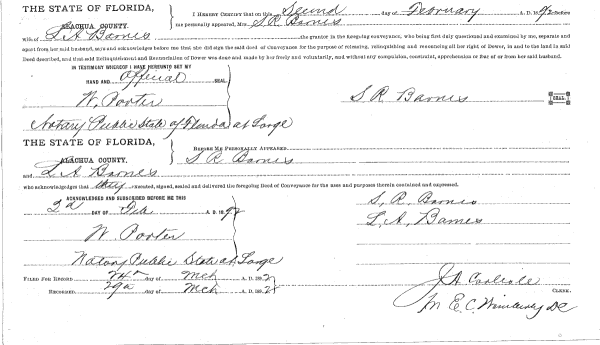 THE STATE OF FLORIDA, I HEREBY CERTIFY that on this Second day of February A. D. 1892 before
ALACHUA COUNTY. me personally appeared, Mrs. S. R. Barnes
wife of L A Barnes the grantor in the foregoing conveyance, who being first duly questioned and examined by me, separate and
apart from her said husband, says and acknowledges before me that she did sign the said deed of Conveyance for the purpose of releasing, relinquishing and renouncing all her right of Dower, in and to the land in said
Deed described, and that said Relinquishment and Renunciation of Dower was done and made by her freely and voluntarily, and without any compulsion, constraint, apprehension or fear of or from her said husband.
IN TESTIMONY WHEREOF I HAVE HEREUNTO SET MY
HAND AND Official SEAL.
W. Porter S R Barnes SEAL.
Notary Public State of Florida at Large
THE STATE OF FLORIDA, BEFORE ME PERSONALLY APPEARED
ALACHUA COUNTY. S R Barnes
and L A Barnes
who acknowledges that they executed, signed, sealed and delivered the foregoing Deed of Conveyance for the uses and purposes therein contained and expressed.
ACKNOWLEDGED AND SUBSCRIBED BEFORE ME THIS S, R. Barnes
2d DAY OF Feb A. D. 1892 L. A, Barnes
W Porter
Notary Public State at Large
FILED FOR RECORD 24th day of Mch A. D. 1892 J A Carlisle
RECORDED 29th day of Mch A. D. 1892 CLERK.
E. C. Wimberly DC